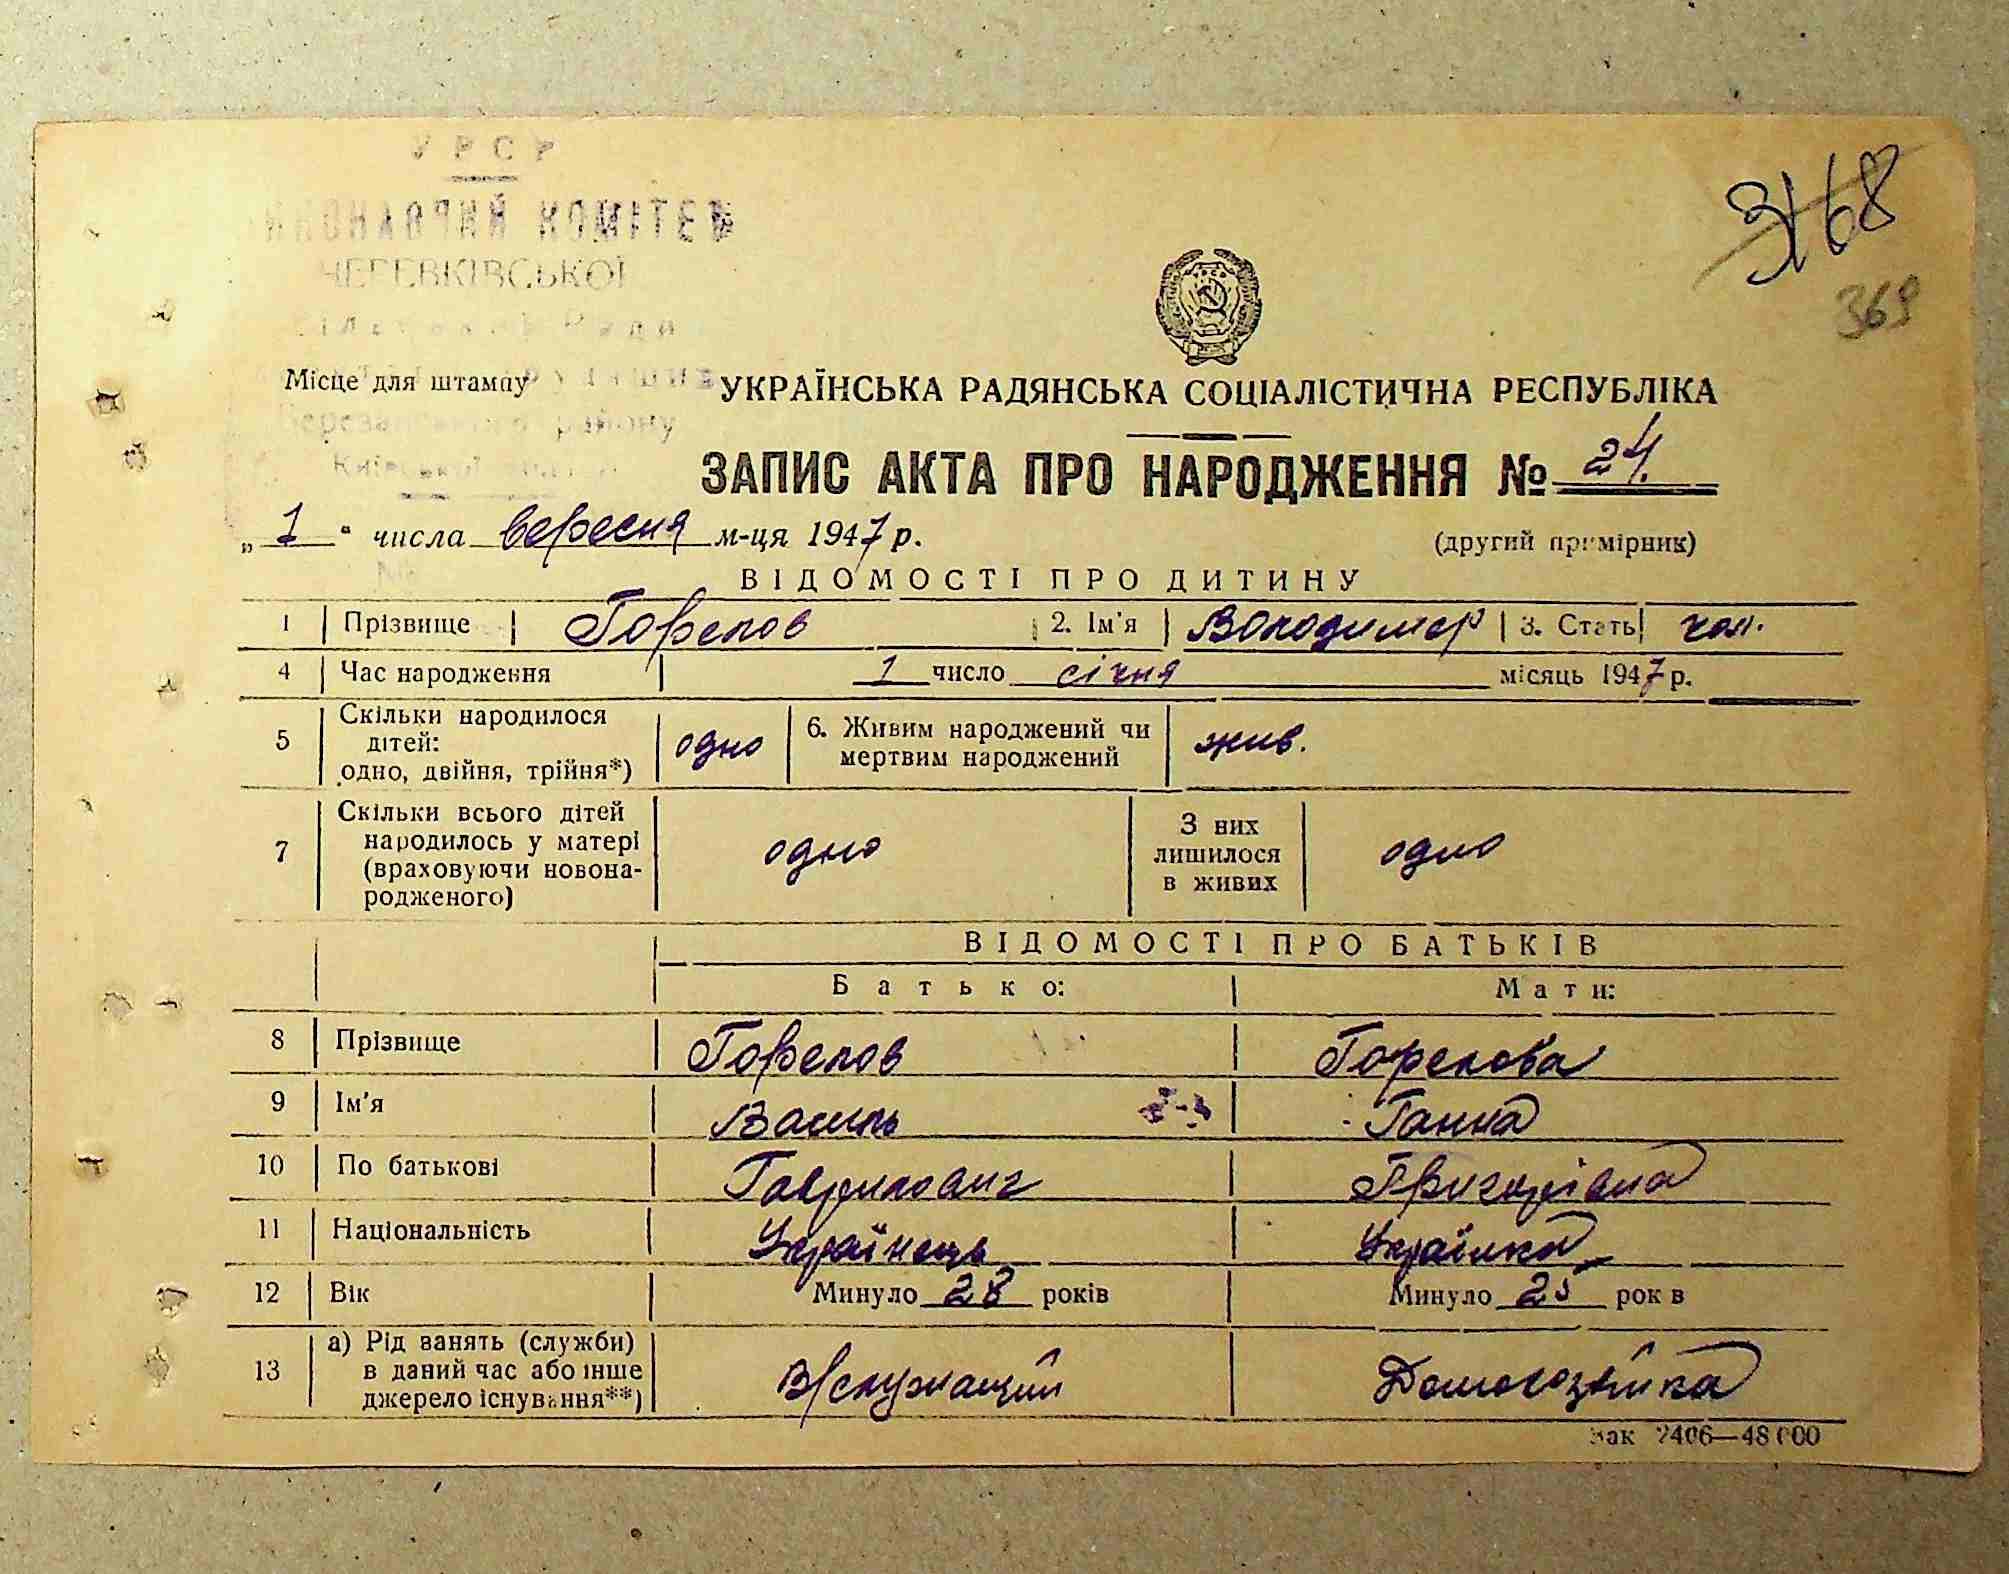 УРСР
КОМІТЕТ
3168
369
Місце для штампу
району
УКРАЇНСЬКА РАДЯНСЬКА СОЦІАЛІСТИЧНА РЕСПУБЛІКА
ЗАПИС АКТА ПРО НАРОДЖЕННЯ № 24.
„ 1 “ числа вересня м-ця 1947 р. (другий примірник)
ВІДОМОСТІ ПРО ДИТИНУ
1 Прізвище Горелов 2. Ім'я Володимер 3. Стать чол.
4 Час народження 1 число січня місяць 1947 р.
5 Скільки народилося дітей: одно, двійня, трійня*) одно 6. Живим народжений чи мертвим народжений жив.
7 Скільки всього дітей народилось у матері (враховуючи новонародженого) одно З них лишилося в живих одно
ВІДОМОСТІ ПРО БАТЬКІВ
Батько: Мати:
8 Прізвище Горелов Горелова
9 Ім'я Василь Ганна
10 По батькові Гаврилович Григорівна
11 Національність Українець Українка
12 Вік Минуло 28 років Минуло 25 рок в
13 а) Рід занять (служби) в даний час або інше джерело існування**) В/служащий Домогозяйка
Зак 2406—48 000